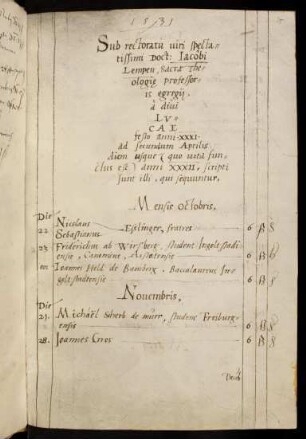 1531
Sub rectoratu viri specta-
tissimi Doct: Jacobi
Lempen, sacrae the-
ologiae professor-
is egregij,
à divi
LV-
CAE
festo anni XXXI.
ad secundum Aprilis
diem usque (quo vita fun-
ctus est) anni XXXII, scripti
sunt illi, qui sequuntur.
Mensis Octobris,
Die
22 Nicolaus
Sebastianus Esslinger, fratres 6 ß 8
Friderichus ab Wirsberg, student Ingolstadi-
ensis, Canonicus, 6 ß
Ioannes Held de Bamberg, Baccalaureus In-
golstadiensis 6 ß 8
Novembris,
Die
21. Michaël Scherb de murr, studens Freiburg-
ensis 6 ß 8
28. Ioannes Gros 6 ß 8